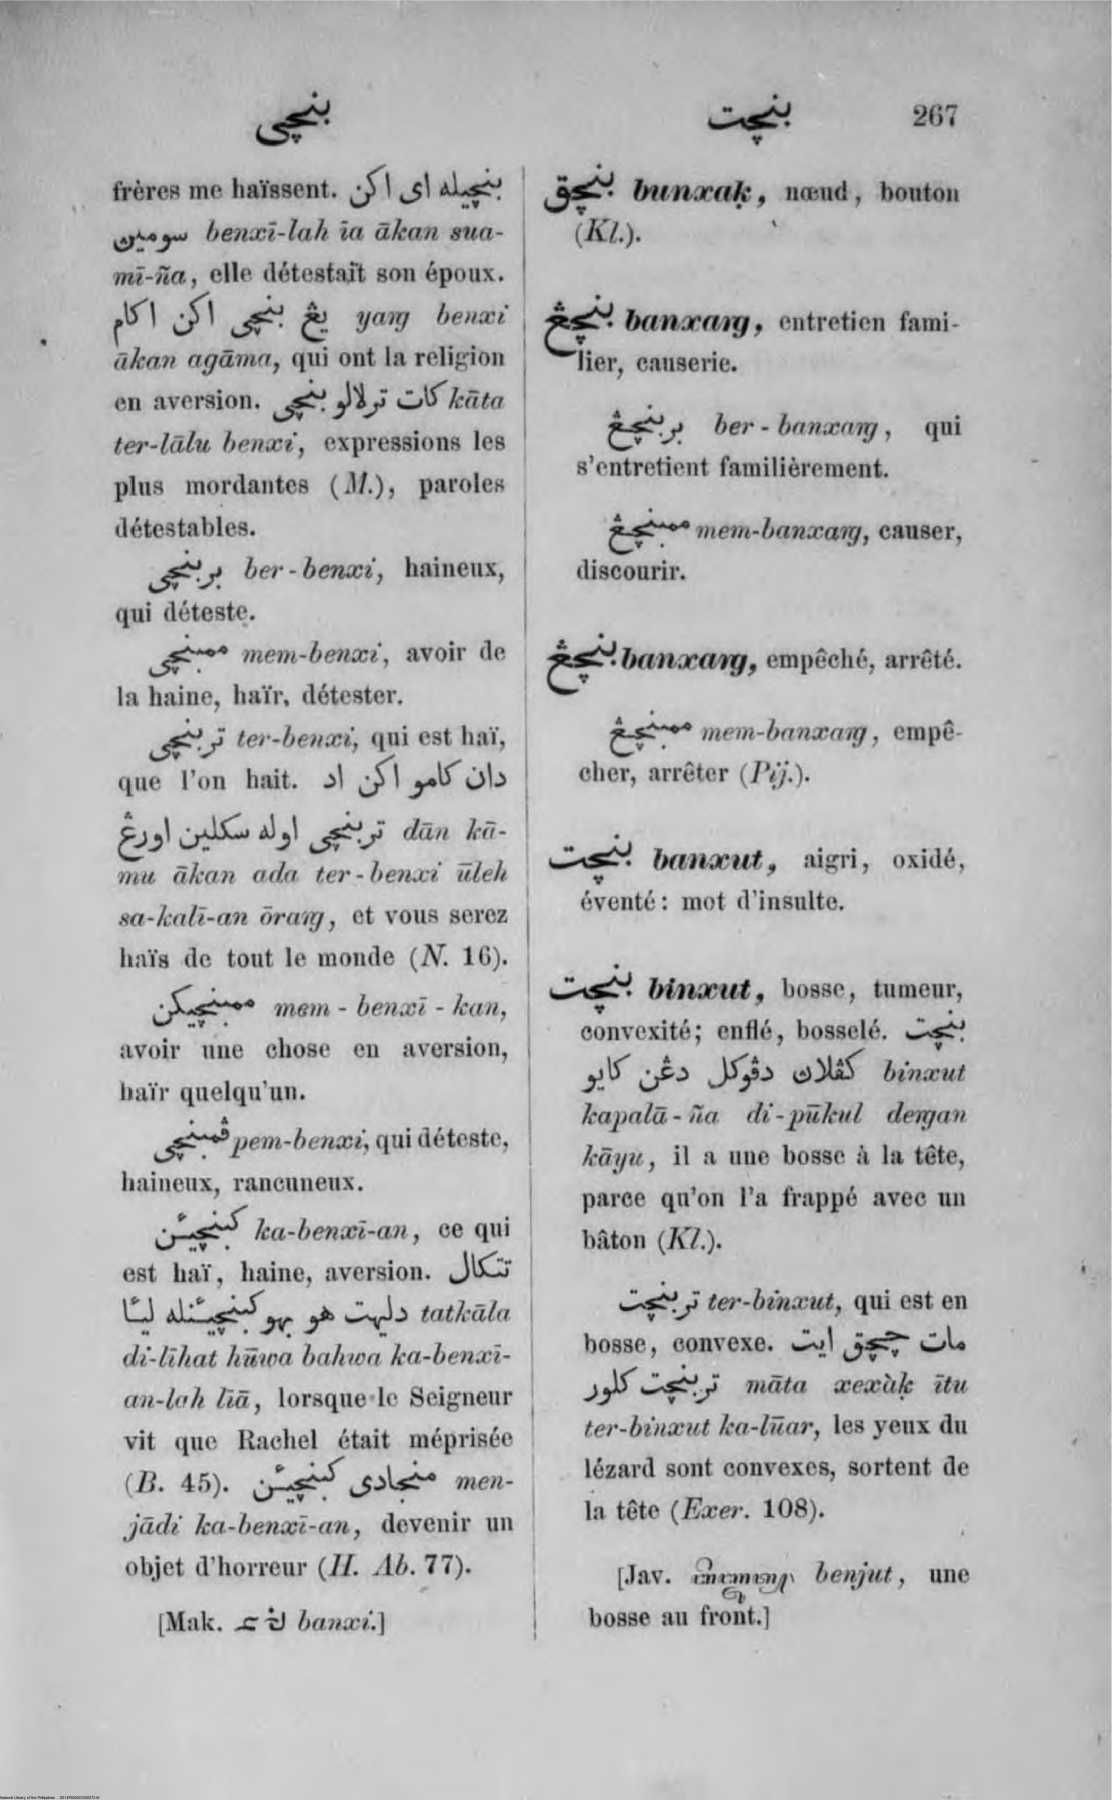 بنچي
بنچت 267
frères me haïssent. بنچيله اي اكن
سومين benxī-lah īa ākan sua-
mī-ña, elle détestait son époux.
يڠ بنچي اكن اڬام yaŋ benxi
ākan agāma, qui ont la religion
en aversion. كات ترلالو بنچي kāta
ter-lālu benxi, expressions les
plus mordantes (M.), paroles
détestables.
بربنچي ber-benxi, haineux,
qui déteste.
ممبنچي mem-benxi, avoir de
la haine, haïr, détester.
تربنچي ter-benxi, qui est haï,
que l'on hait. دان كامو اكن اد
تربنچي اوله سكلين اورڠ dān kā-
mu ākan ada ter-benxi ūleh
sa-kalī-an ōraŋ, et vous serez
haïs de tout le monde (N. 16).
ممبنچيكن mem-benxī-kan,
avoir une chose en aversion,
haïr quelqu'un.
ڤمبنچي pem-benxi, qui déteste,
haineux, rancuneux.
كبنچيئن ka-benxī-an, ce qui
est haï, haine, aversion. تتكال
دليهت هو بهو كبنچيئنله ليئا tatkāla
di-līhat hūwa bahwa ka-benxī-
an-lah līā, lorsque le Seigneur
vit que Rachel était méprisée
(B. 45). منجادي كبنچيئن men-
jādi ka-benxī-an, devenir un
objet d'horreur (H. Ab. 77).
[Mak. banxi.]
بنچق bunxaḳ, nœud, bouton
(Kl.).
بنچڠ banxaŋ, entretien fami-
lier, causerie.
بربنچڠ ber-banxaŋ, qui
s'entretient familièrement.
ممبنچڠ mem-banxaŋ, causer,
discourir.
بنچڠ banxaŋ, empêché, arrêté.
ممبنچڠ mem-banxaŋ, empê-
cher, arrêter (Pij.).
بنچت banxut, aigri, oxidé,
éventé: mot d'insulte.
بنچت binxut, bosse, tumeur,
convexité; enflé, bosselé. بنچت
كڤلاڽ دڤوكل دڠن كايو binxut
kapalā-ña di-pūkul deŋan
kāyu, il a une bosse à la tête,
parce qu'on l'a frappé avec un
bâton (Kl.).
تربنچت ter-binxut, qui est en
bosse, convexe. مات چچق ايت
تربنچت كلور māta xexàḳ ītu
ter-binxut ka-lūar, les yeux du
lézard sont convexes, sortent de
la tête (Exer. 108).
[Jav. benjut, une
bosse au front.]